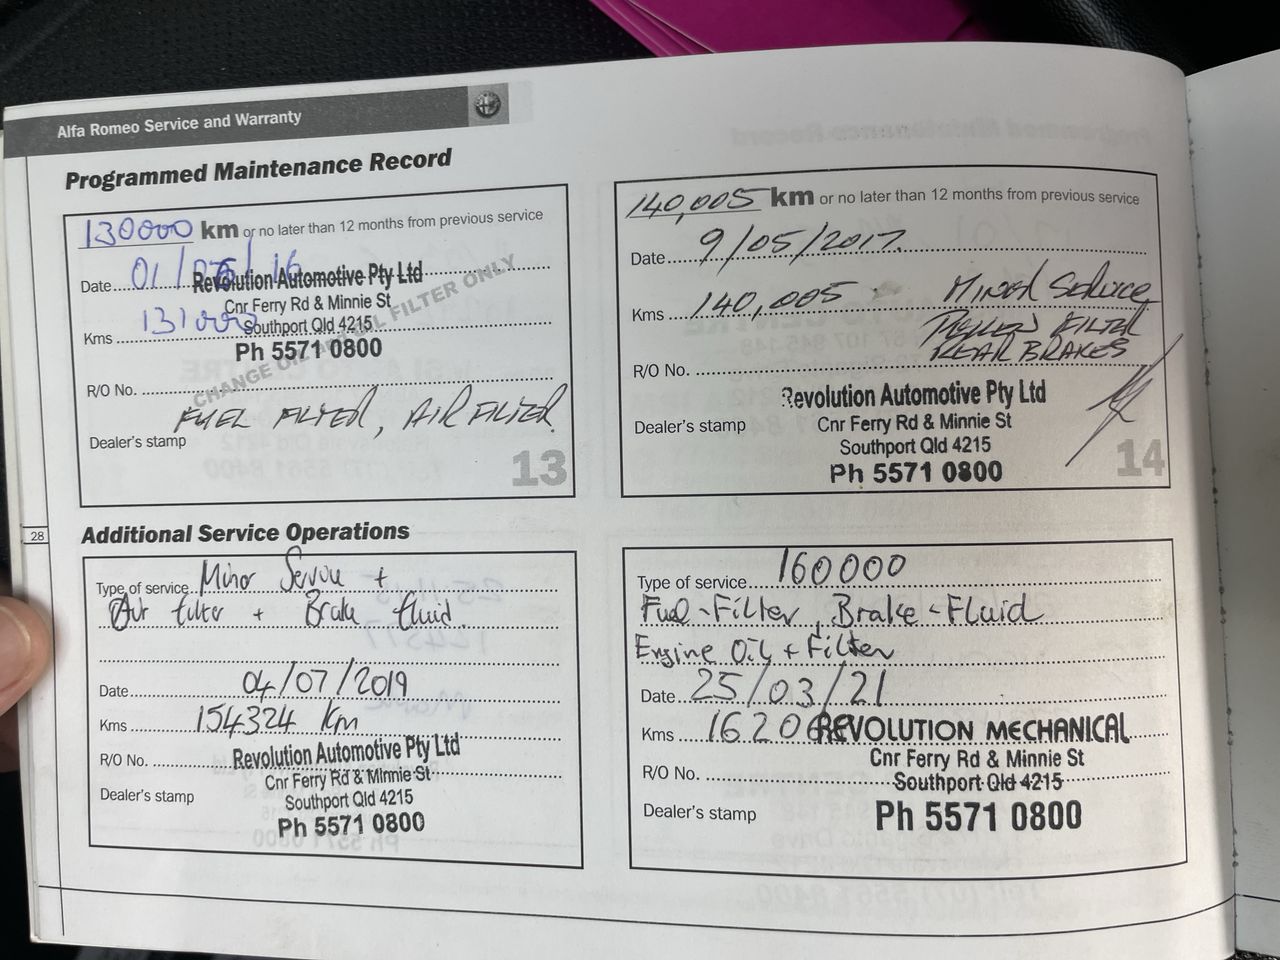 Alfa Romeo Service and Warranty
Programmed Maintenance Record
130000 km or no later than 12 months from previous service
Date 01/ /16
Revolution Automotive Pty Ltd
Cnr Ferry Rd & Minnie St
Kms 131000
Southport Qld 4215
Ph 5571 0800
CHANGE OIL AND OIL FILTER ONLY
R/O No.
FUEL FILTER, AIR FILTER
Dealer's stamp
13
140,005 km or no later than 12 months from previous service
Date 9/05/2017
Kms 140,005 MINOR SERVICE
POLLEN FILTER
REAR BRAKES
R/O No.
Revolution Automotive Pty Ltd
Dealer's stamp
Cnr Ferry Rd & Minnie St
Southport Qld 4215
Ph 5571 0800
14
28
Additional Service Operations
Type of service Minor Service +
Air filter + Brake fluid.
Date 04/07/2019
Kms 154324 Km
R/O No.
Revolution Automotive Pty Ltd
Cnr Ferry Rd & Minnie St
Dealer's stamp
Southport Qld 4215
Ph 5571 0800
Type of service 160000
Fuel-Filter, Brake-Fluid
Engine Oil + Filter
Date 25/03/21
Kms REVOLUTION MECHANICAL
Cnr Ferry Rd & Minnie St
R/O No.
Southport Qld 4215
Dealer's stamp
Ph 5571 0800